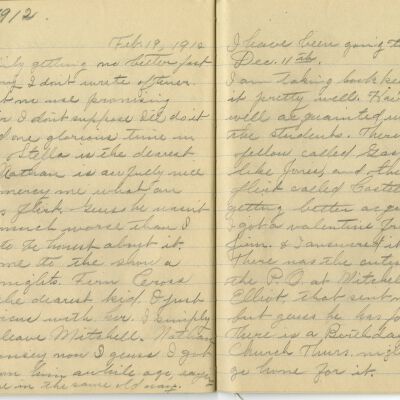 1912.
Feb. 19, 1912
getting no better fast
I don't write oftener.
me use promising
I don't suppose I'll do it
one glorious time in
Stella is the dearest
Nathan is awfully nice
mercy me what an
flirt. Guess he wasn't
much worse than I
to be honest about it.
me to the show a
nights. Fern Cross
the dearest kid. I just
with her. I simply
leave Mitchell. Nathan
now I guess. I got
him awhile ago, says
in the same old way.
I have been going to
Dec. 11th.
I am taking book ke
it pretty well.
well acquainted w
the students. There
fellow called
like yours, and
flirt called
getting better acq
I got a valentine fr
him. & I answered it
There was the cutes
the P.O. at Mitchell
Elliot, that sent m
but guess he has fo
There is a Birthda
Church Thurs. nigh
go home for it.